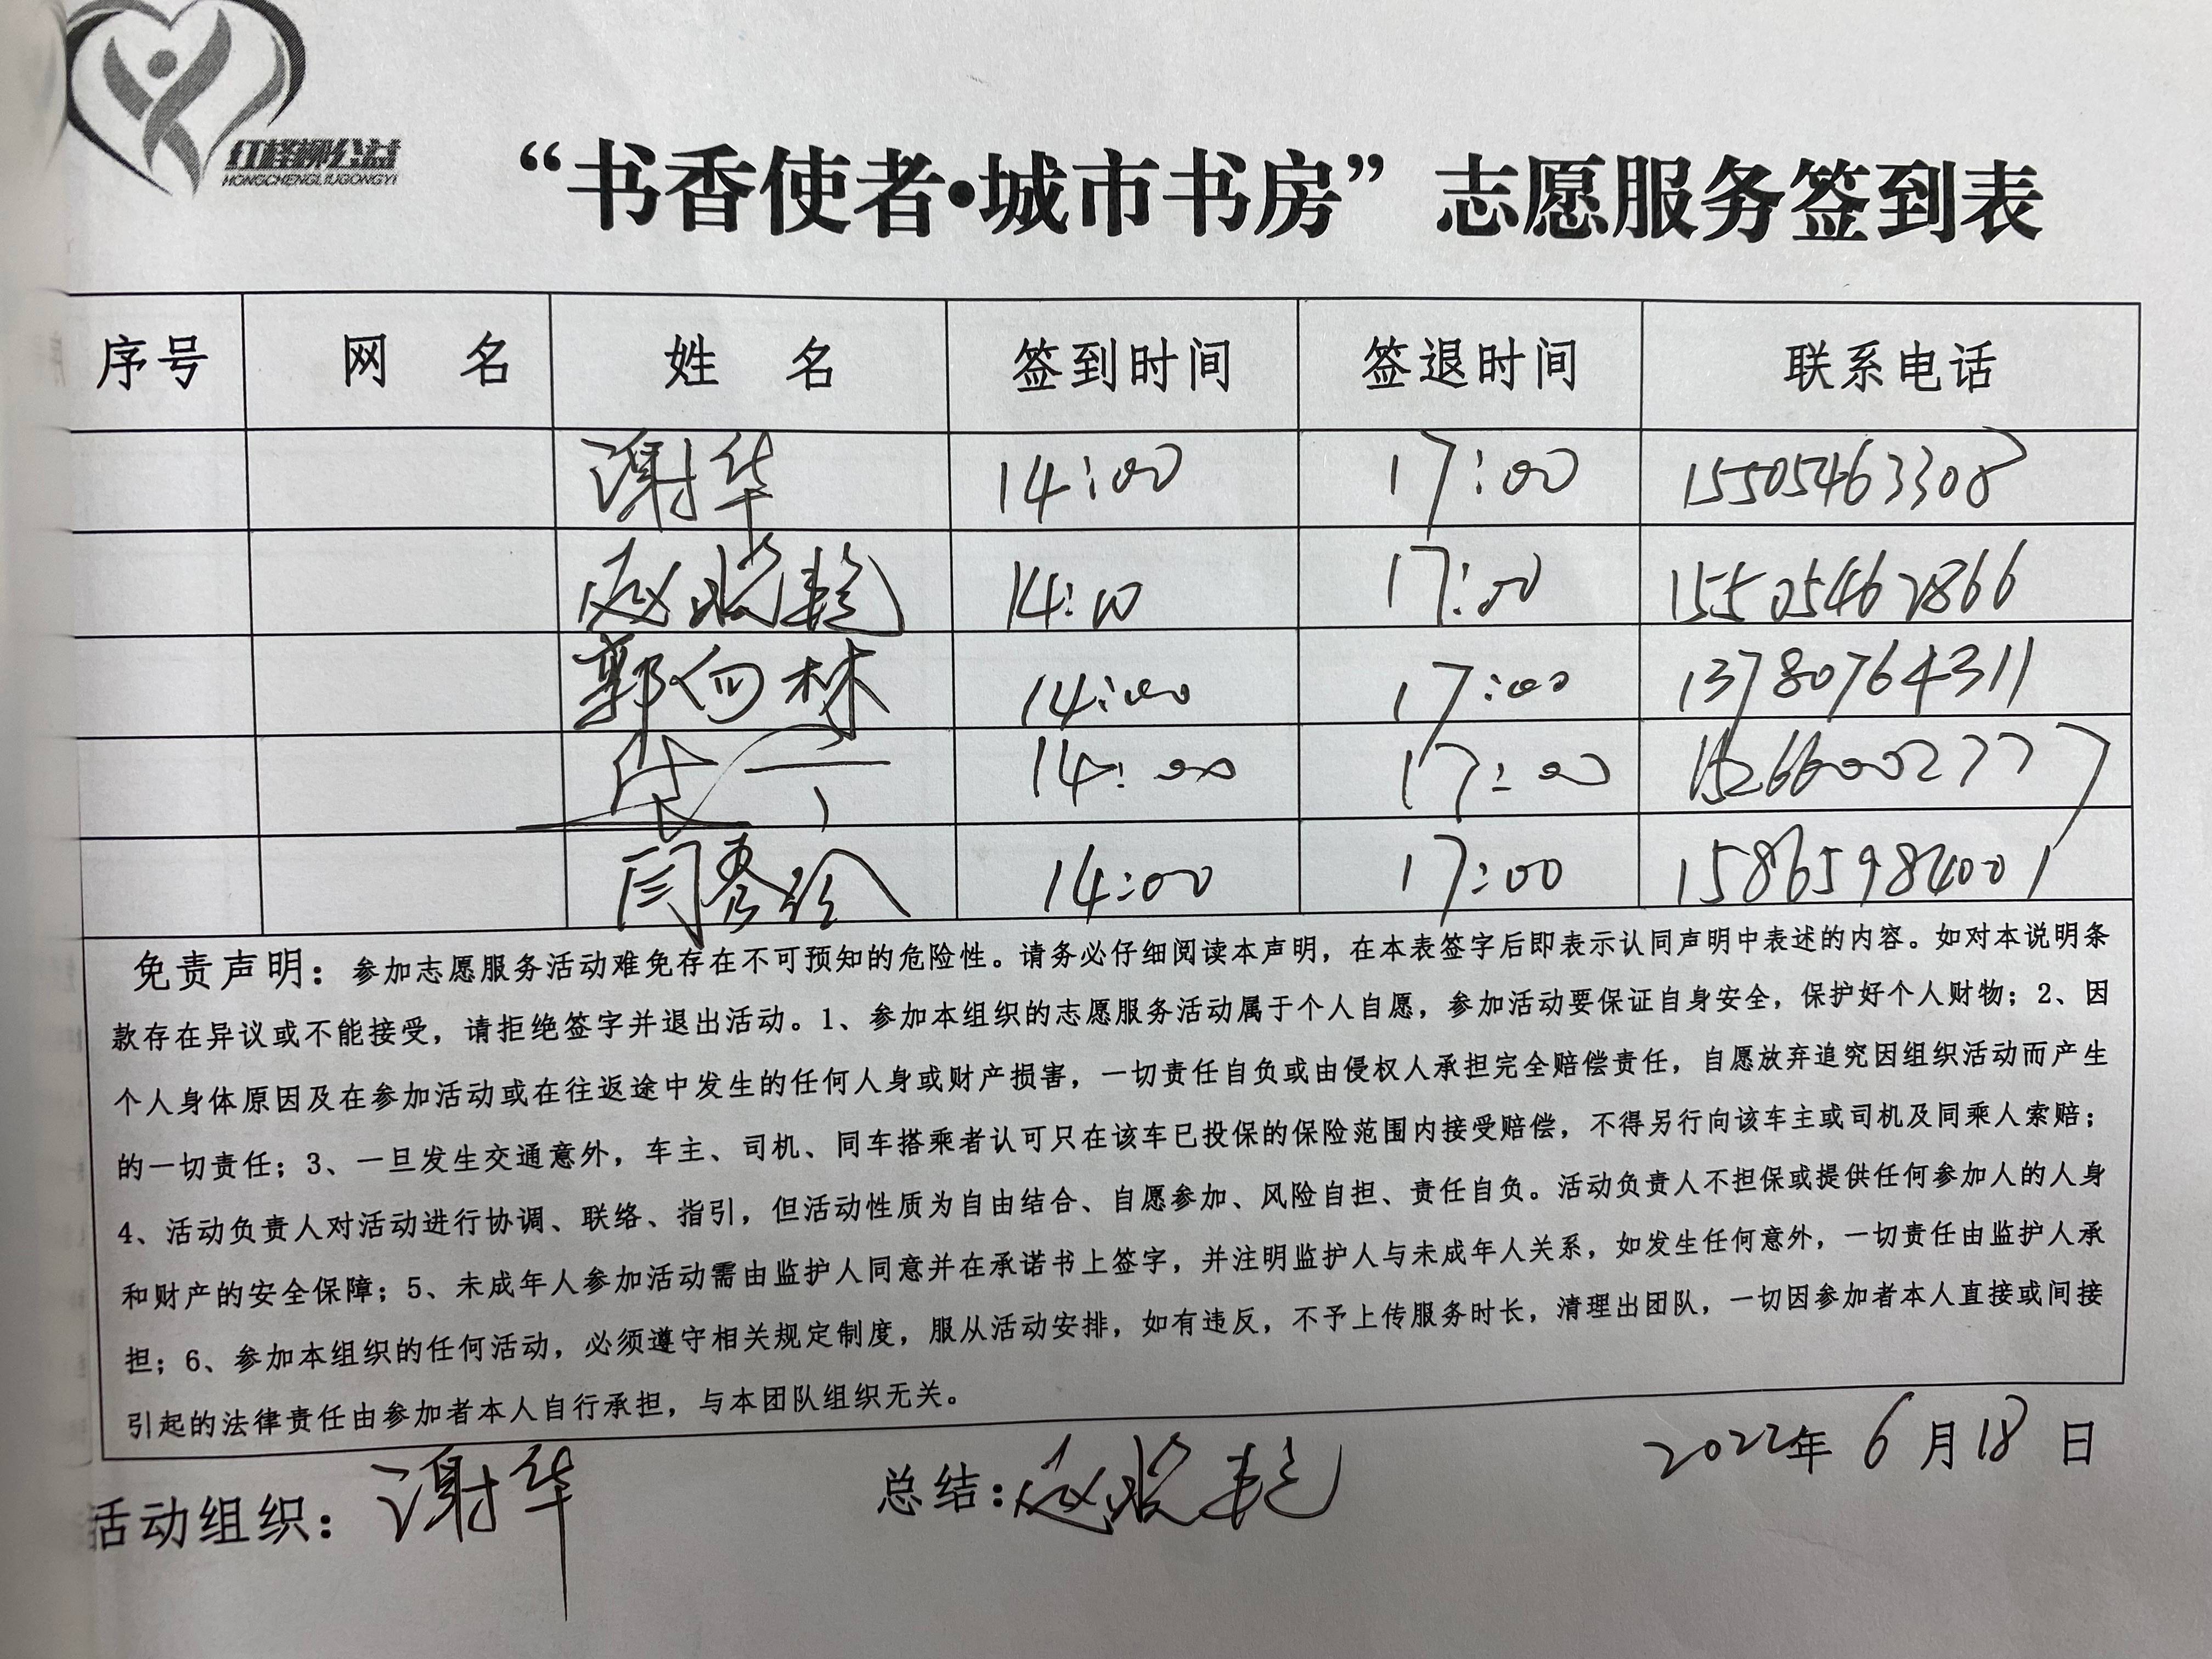 红柽柳公益
HONGCHENGLIUGONGYI
“书香使者•城市书房”志愿服务签到表
序号 网 名 姓 名 签到时间 签退时间 联系电话
谢华 14:00 17:00 15505463308
赵 14:10 17:00 15505462866
郭向林 14:00 17:00 13780764311
14:00 17:00 15266002777
闫秀玲 14:00 17:00 15865984001
免责声明：参加志愿服务活动难免存在不可预知的危险性。请务必仔细阅读本声明，在本表签字后即表示认同声明中表述的内容。如对本说明条
款存在异议或不能接受，请拒绝签字并退出活动。1、参加本组织的志愿服务活动属于个人自愿，参加活动要保证自身安全，保护好个人财物；2、因
个人身体原因及在参加活动或在往返途中发生的任何人身或财产损害，一切责任自负或由侵权人承担完全赔偿责任，自愿放弃追究因组织活动而产生
的一切责任；3、一旦发生交通意外，车主、司机、同车搭乘者认可只在该车已投保的保险范围内接受赔偿，不得另行向该车主或司机及同乘人索赔；
4、活动负责人对活动进行协调、联络、指引，但活动性质为自由结合、自愿参加、风险自担、责任自负。活动负责人不担保或提供任何参加人的人身
和财产的安全保障；5、未成年人参加活动需由监护人同意并在承诺书上签字，并注明监护人与未成年人关系，如发生任何意外，一切责任由监护人承
担；6、参加本组织的任何活动，必须遵守相关规定制度，服从活动安排，如有违反，不予上传服务时长，清理出团队，一切因参加者本人直接或间接
引起的法律责任由参加者本人自行承担，与本团队组织无关。
活动组织：谢华 总结：赵 2022年 6月18日